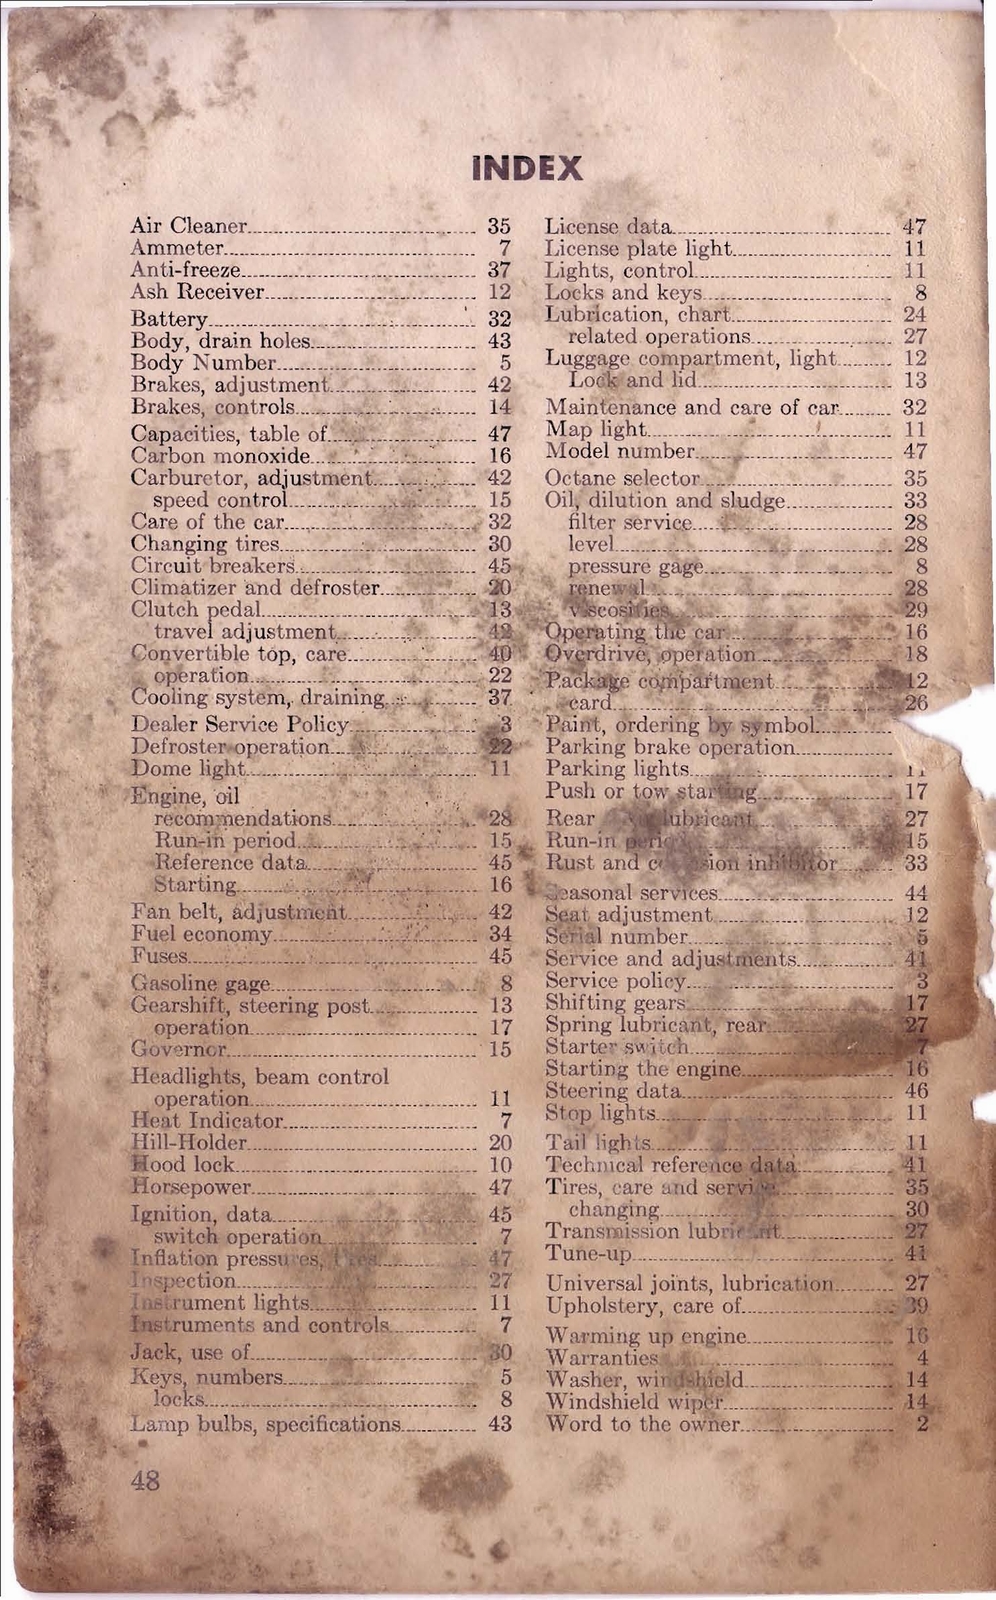 INDEX
Air Cleaner 35
Ammeter 7
Anti-freeze 37
Ash Receiver 12
Battery 32
Body, drain holes 43
Body Number 5
Brakes, adjustment 42
Brakes, controls 14
Capacities, table of 47
Carbon monoxide 16
Carburetor, adjustment 42
speed control 15
Care of the car 32
Changing tires 30
Circuit breakers 45
Climatizer and defroster 20
Clutch pedal 13
travel adjustment 42
Convertible top, care 40
operation 22
Cooling system, draining 37
Dealer Service Policy 3
Defroster operation 22
Dome light 11
Engine, oil
recommendations 28
Run-in period 15
Reference data 45
Starting 16
Fan belt, adjustment 42
Fuel economy 34
Fuses 45
Gasoline gage 8
Gearshift, steering post 13
operation 17
Governor 15
Headlights, beam control
operation 11
Heat Indicator 7
Hill-Holder 20
Hood lock 10
Horsepower 47
Ignition, data 45
switch operation 7
Inflation pressures, tires 47
Inspection 27
Instrument lights 11
Instruments and controls 7
Jack, use of 30
Keys, numbers 5
locks 8
Lamp bulbs, specifications 43
License data 47
License plate light 11
Lights, control 11
Locks and keys 8
Lubrication, chart 24
related operations 27
Luggage compartment, light 12
Lock and lid 13
Maintenance and care of car 32
Map light 11
Model number 47
Octane selector 35
Oil, dilution and sludge 33
filter service 28
level 28
pressure gage 8
renewal 28
viscosities 29
Operating the car 16
Overdrive, operation 18
Package compartment 12
card 26
Paint, ordering by symbol
Parking brake operation
Parking lights 11
Push or tow starting 17
Rear lubricant 27
Run-in period 15
Rust and corrosion inhibitor 33
Seasonal services 44
Seat adjustment 12
Serial number 5
Service and adjustments 41
Service policy 3
Shifting gears 17
Spring lubricant, rear 27
Starter switch 7
Starting the engine 16
Steering data 46
Stop lights 11
Tail lights 11
Technical reference data 41
Tires, care and service 35
changing 30
Transmission lubricant 27
Tune-up 41
Universal joints, lubrication 27
Upholstery, care of 39
Warming up engine 16
Warranties 4
Washer, windshield 14
Windshield wiper 14
Word to the owner 2
48